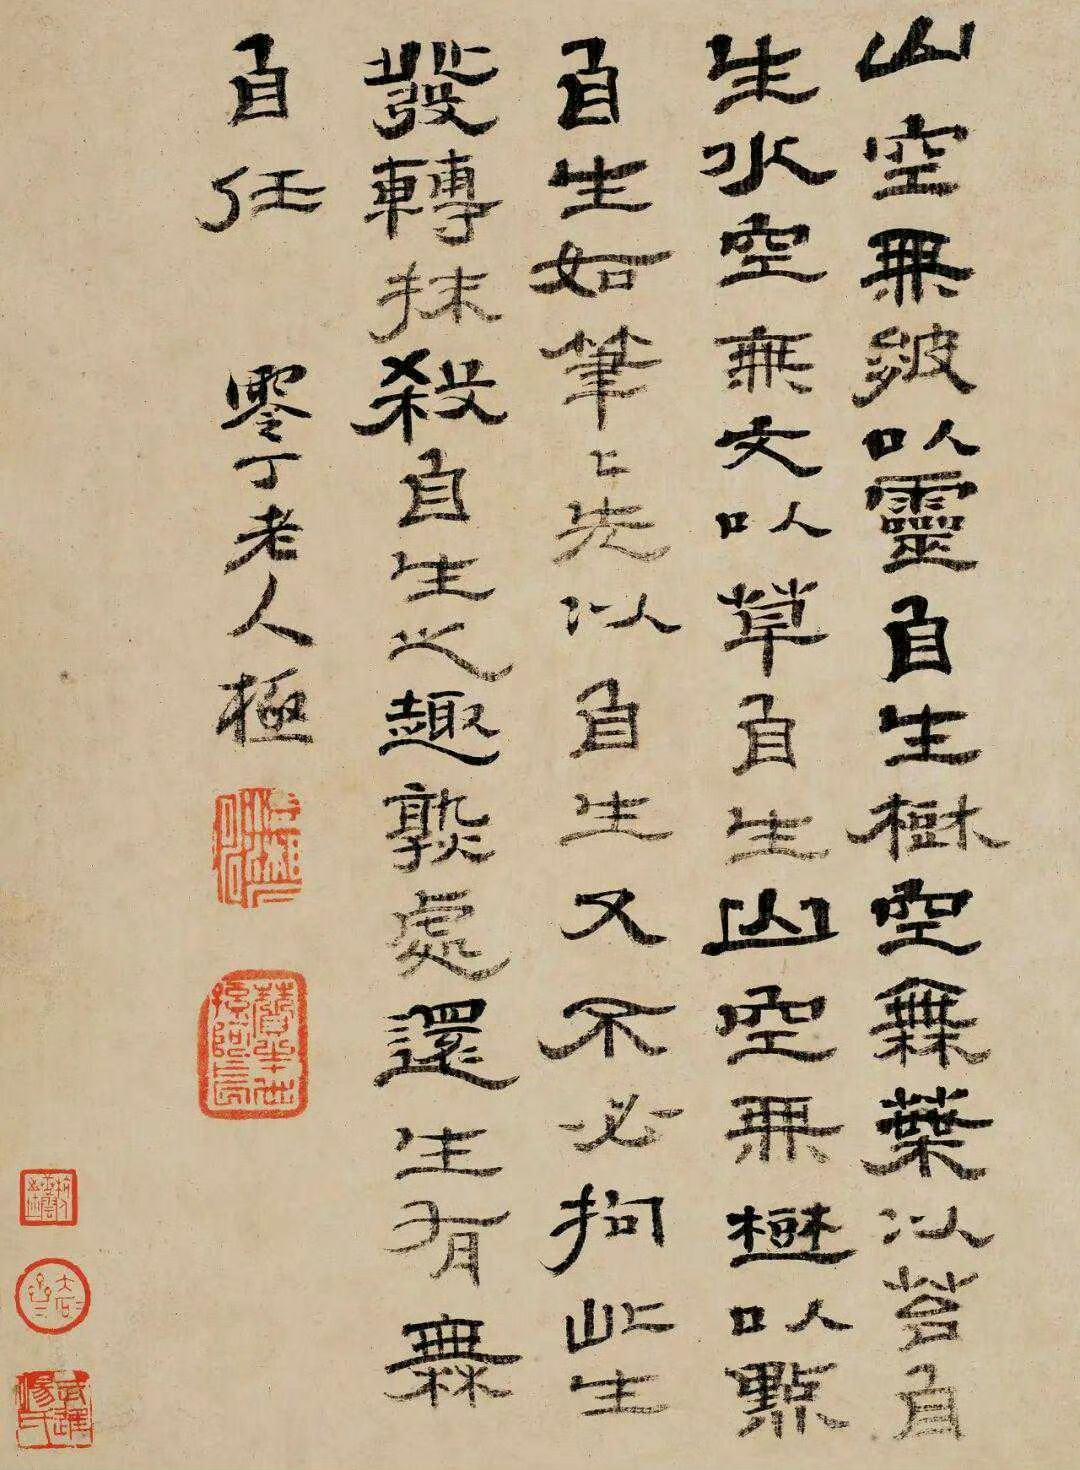 山空無皴以靈自生樹空無葉以苕自
生水空無文以草自生山空無樹以點
自生如筆〻先以自生又不必拘此生
發轉抹殺自生之趣熟處還生有無
自任
零丁老人極
贊之十世孫阿長